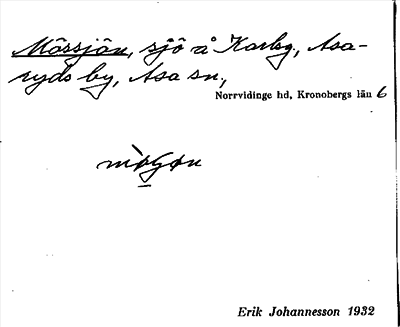 Mässjön, sjö å Karlsg, Asa-
ryds by, Asa sn,
Norrvidinge hd, Kronobergs län 6
Erik Johannesson 1932